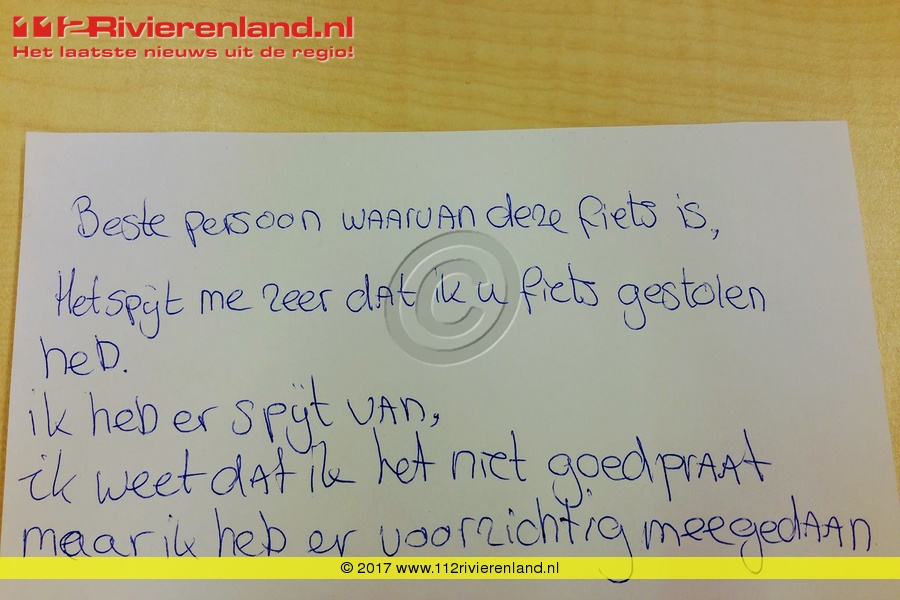 112Rivierenland.nl
Het laatste nieuws uit de regio!
Beste persoon waarvan deze fiets is,
Het spijt me zeer dat ik u fiets gestolen
heb.
ik heb er spijt van,
ik weet dat ik het niet goedpraat
maar ik heb er voorzichtig meegedaan
© 2017 www.112rivierenland.nl